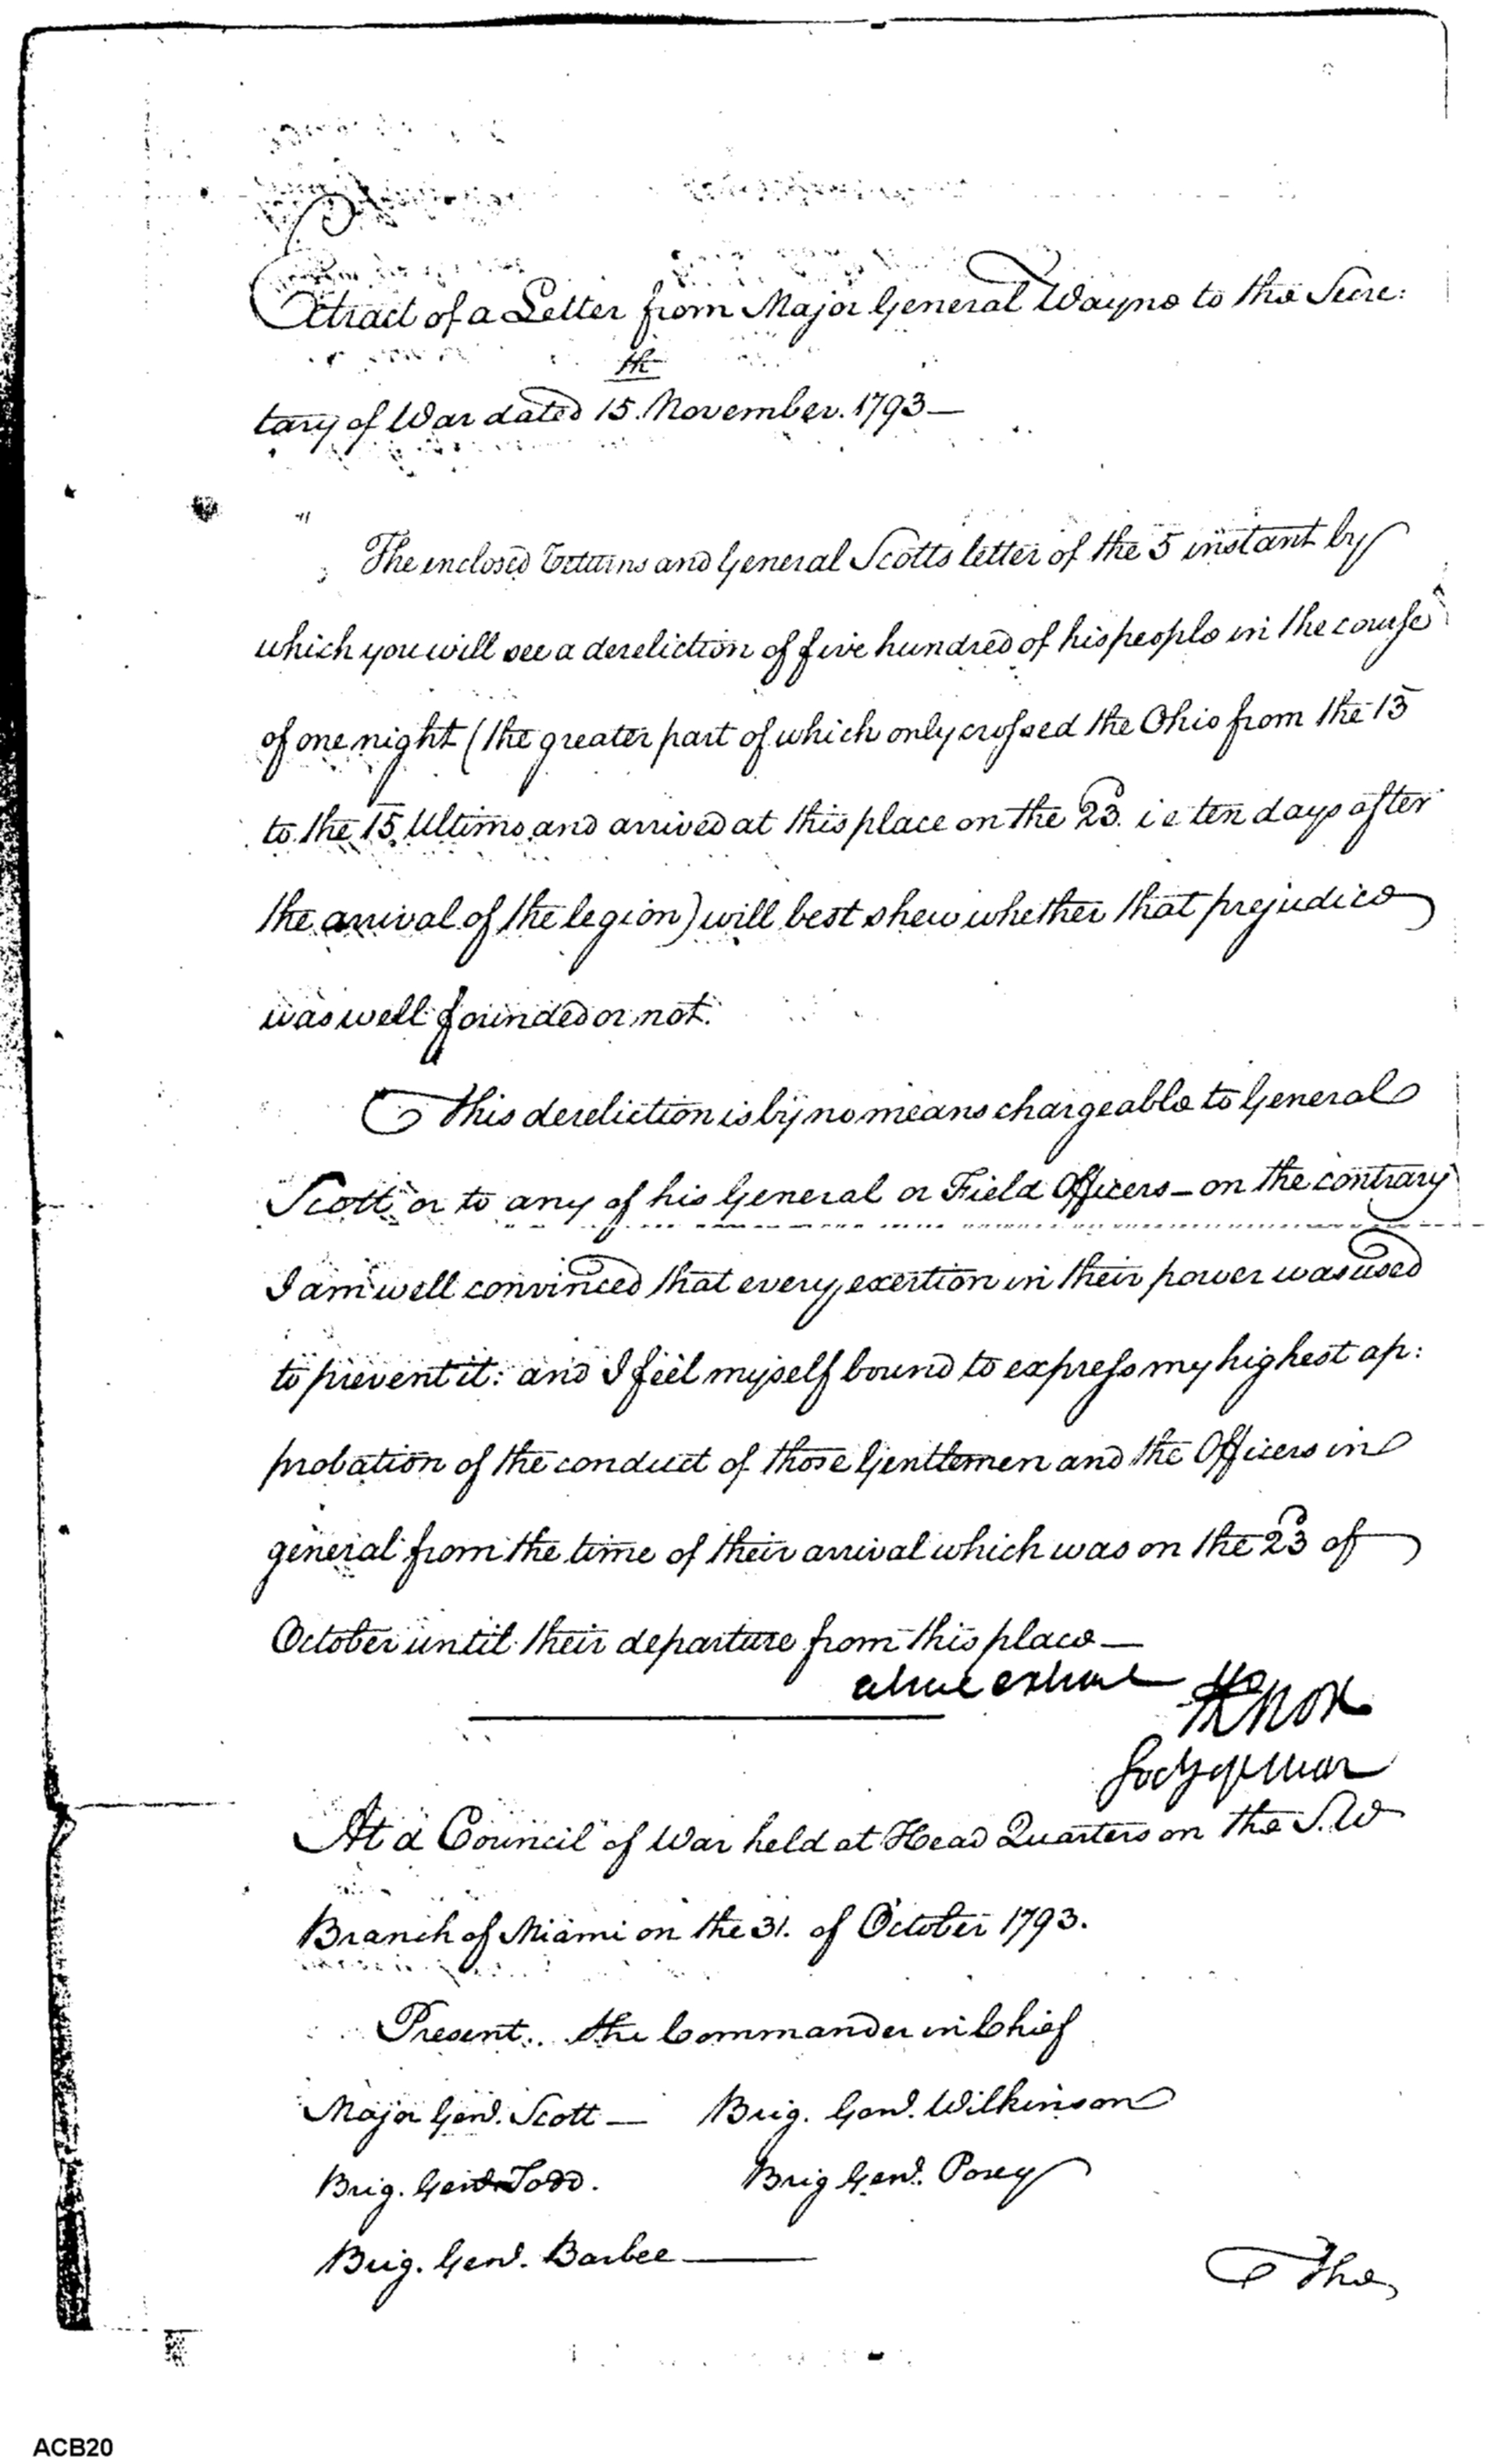 Extract of a Letter from Major General Wayne to the Secre:
tary of War dated 15.th November. 1793 —
" The enclosed returns and General Scotts letter of the 5 instant by
which you will see a dereliction of five hundred of his people in the course
of one night (the greater part of which only crossed the Ohio from the 13
to the 15 Ultimo and arrived at this place on the 23. i e ten days after
the arrival of the legion) will best shew whether that prejudice
was well founded or not.
This dereliction is by no means chargeable to General
Scott or to any of his General or Field Officers — on the contrary
I am well convinced that every exertion in their power was used
to prevent it: and I feel myself bound to express my highest ap:
probation of the conduct of those Gentlemen and the Officers in
general from the time of their arrival which was on the 23d of
October until their departure from this place —
HKnox
Secy of war
At a Council of War held at Head Quarters on the S.W
Branch of Miami on the 31. of October 1793.
Present.. the Commander in Chief
Major Genl. Scott — Brig. Genl. Wilkinson
Brig. Genl. Todd. Brig Genl. Posey
Brig. Genl. Barbee —
The
ACB20